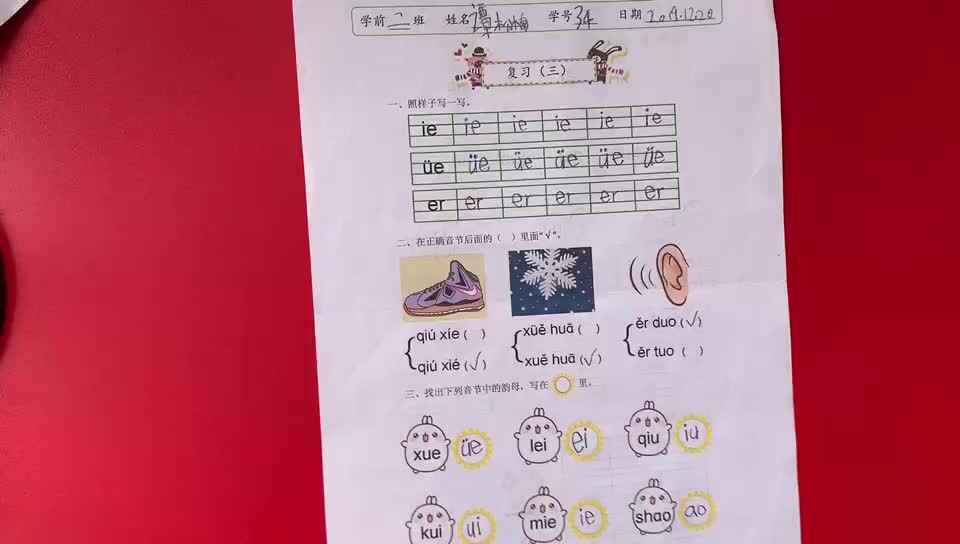 学前二班 姓名谭松梅 学号34 日期2019.12.20
复习（三）
一、照样子写一写。
ie ie ie ie ie ie
üe üe üe üe üe üe
er er er er er er
二、在正确音节后面的（ ）里面“√”。
qiú xíe（ ） xüě huā（ ） ěr duo（√）
qiú xié（√） xuě huā（√） ěr tuo（ ）
三、找出下列音节中的韵母，写在 里。
xue üe lei ei qiu iu
kui ui mie ie shao ao